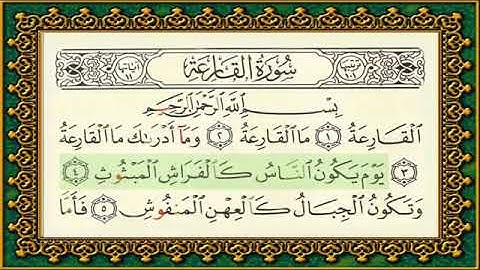 سُورَةُ القَارِعَةِ
بِسْمِ ٱللَّهِ ٱلرَّحْمَٰنِ ٱلرَّحِيمِ
ٱلْقَارِعَةُ ١ مَا ٱلْقَارِعَةُ ٢ وَمَآ أَدْرَىٰكَ مَا ٱلْقَارِعَةُ
٣ يَوْمَ يَكُونُ ٱلنَّاسُ كَٱلْفَرَاشِ ٱلْمَبْثُوثِ ٤
وَتَكُونُ ٱلْجِبَالُ كَٱلْعِهْنِ ٱلْمَنفُوشِ ٥ فَأَمَّا